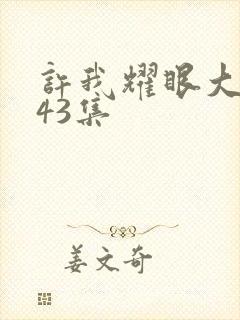 許我耀眼大
43集
姜文奇